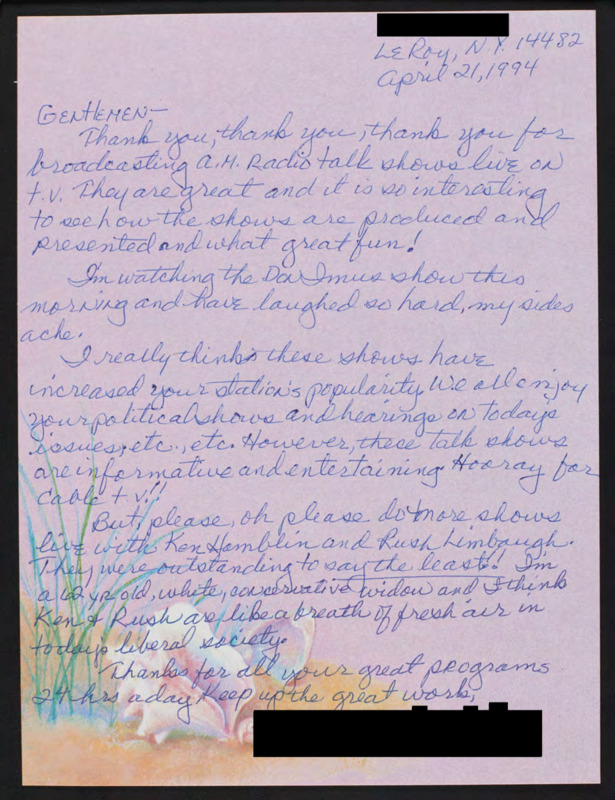 LeRoy, N.Y. 14482
April 21, 1994
Gentlemen-
Thank you, thank you, thank you for
broadcasting A.M. Radio talk shows live on
t.v. They are great and it is so interesting
to see how the shows are produced and
presented and what great fun!
I'm watching the Don Imus show this
morning and have laughed so hard, my sides
ache.
I really think these shows have
increased your station's popularity. We all enjoy
your political shows and hearings on today's
issues, etc., etc. However, these talk shows
are informative and entertaining. Hooray for
cable t.v.!!
But, please, oh please do more shows
live with Ken Hamblin and Rush Limbaugh.
They were outstanding to say the least!! I'm
a 62 yr old, white, conservative widow and I think
Ken & Rush are like a breath of fresh air in
todays liberal society.
Thanks for all your great programs
24 hrs a day. Keep up the great work,